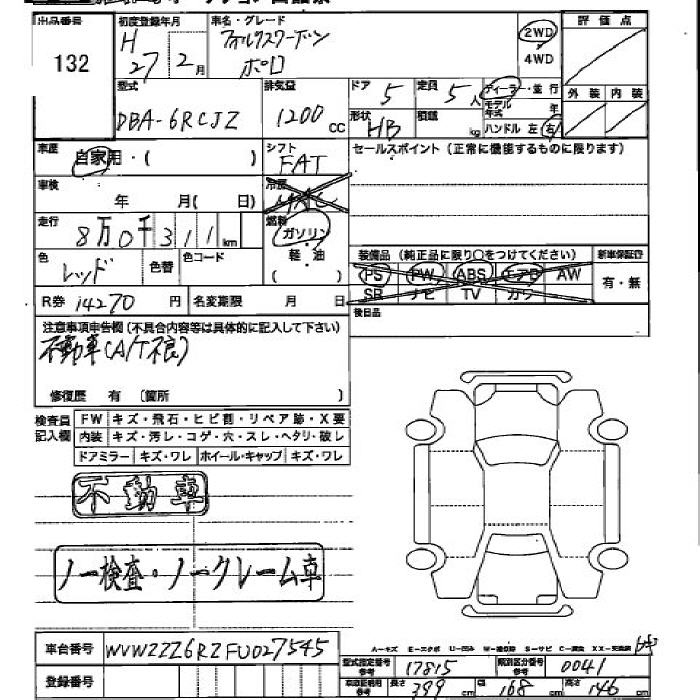 出品番号 初度登録年月 車名・グレード 評価点
132 H27 2月 フォルクスワーゲン ポロ 2WD
4WD
型式 排気量 ドア 定員 ディーラー・並行 外装 内装
DBA-6RCJZ 1200cc 5 5人 モデル年式 年
形状 HB 積載 kg ハンドル 左 右
車歴 自家用・( ) シフト FAT セールスポイント(正常に機能するものに限ります)
車検 年 月( 日) 冷房
走行 8万0千311km 燃料 ガソリン
軽油
色 レッド 色替 色コード ( ) 装備品(純正品に限り○をつけてください) 新車保証書
PS PW ABS エアB AW 有・無
SR ナビ TV カワ
R券 14270円 名変期限 月 日 後日品
注意事項申告欄(不具合内容等は具体的に記入して下さい)
不動車(A/T不良)
修復歴 有 (箇所 )
検査員記入欄 FW キズ・飛石・ヒビ割・リペア跡・X要
内装 キズ・汚レ・コゲ・穴・スレ・ヘタリ・破レ
ドアミラー キズ・ワレ ホイール・キャップ キズ・ワレ
不動車
ノー検査・ノークレーム車
A－キズ E－エクボ U－凹み W－補修跡 S－サビ C－腐食 XX－交換済
車台番号 WVWZZZ6RZFU027545
型式指定番号参考 17815 類別区分番号参考 0041
登録番号 車庫証明用参考 長さ 399cm 幅 168cm 高さ 146cm